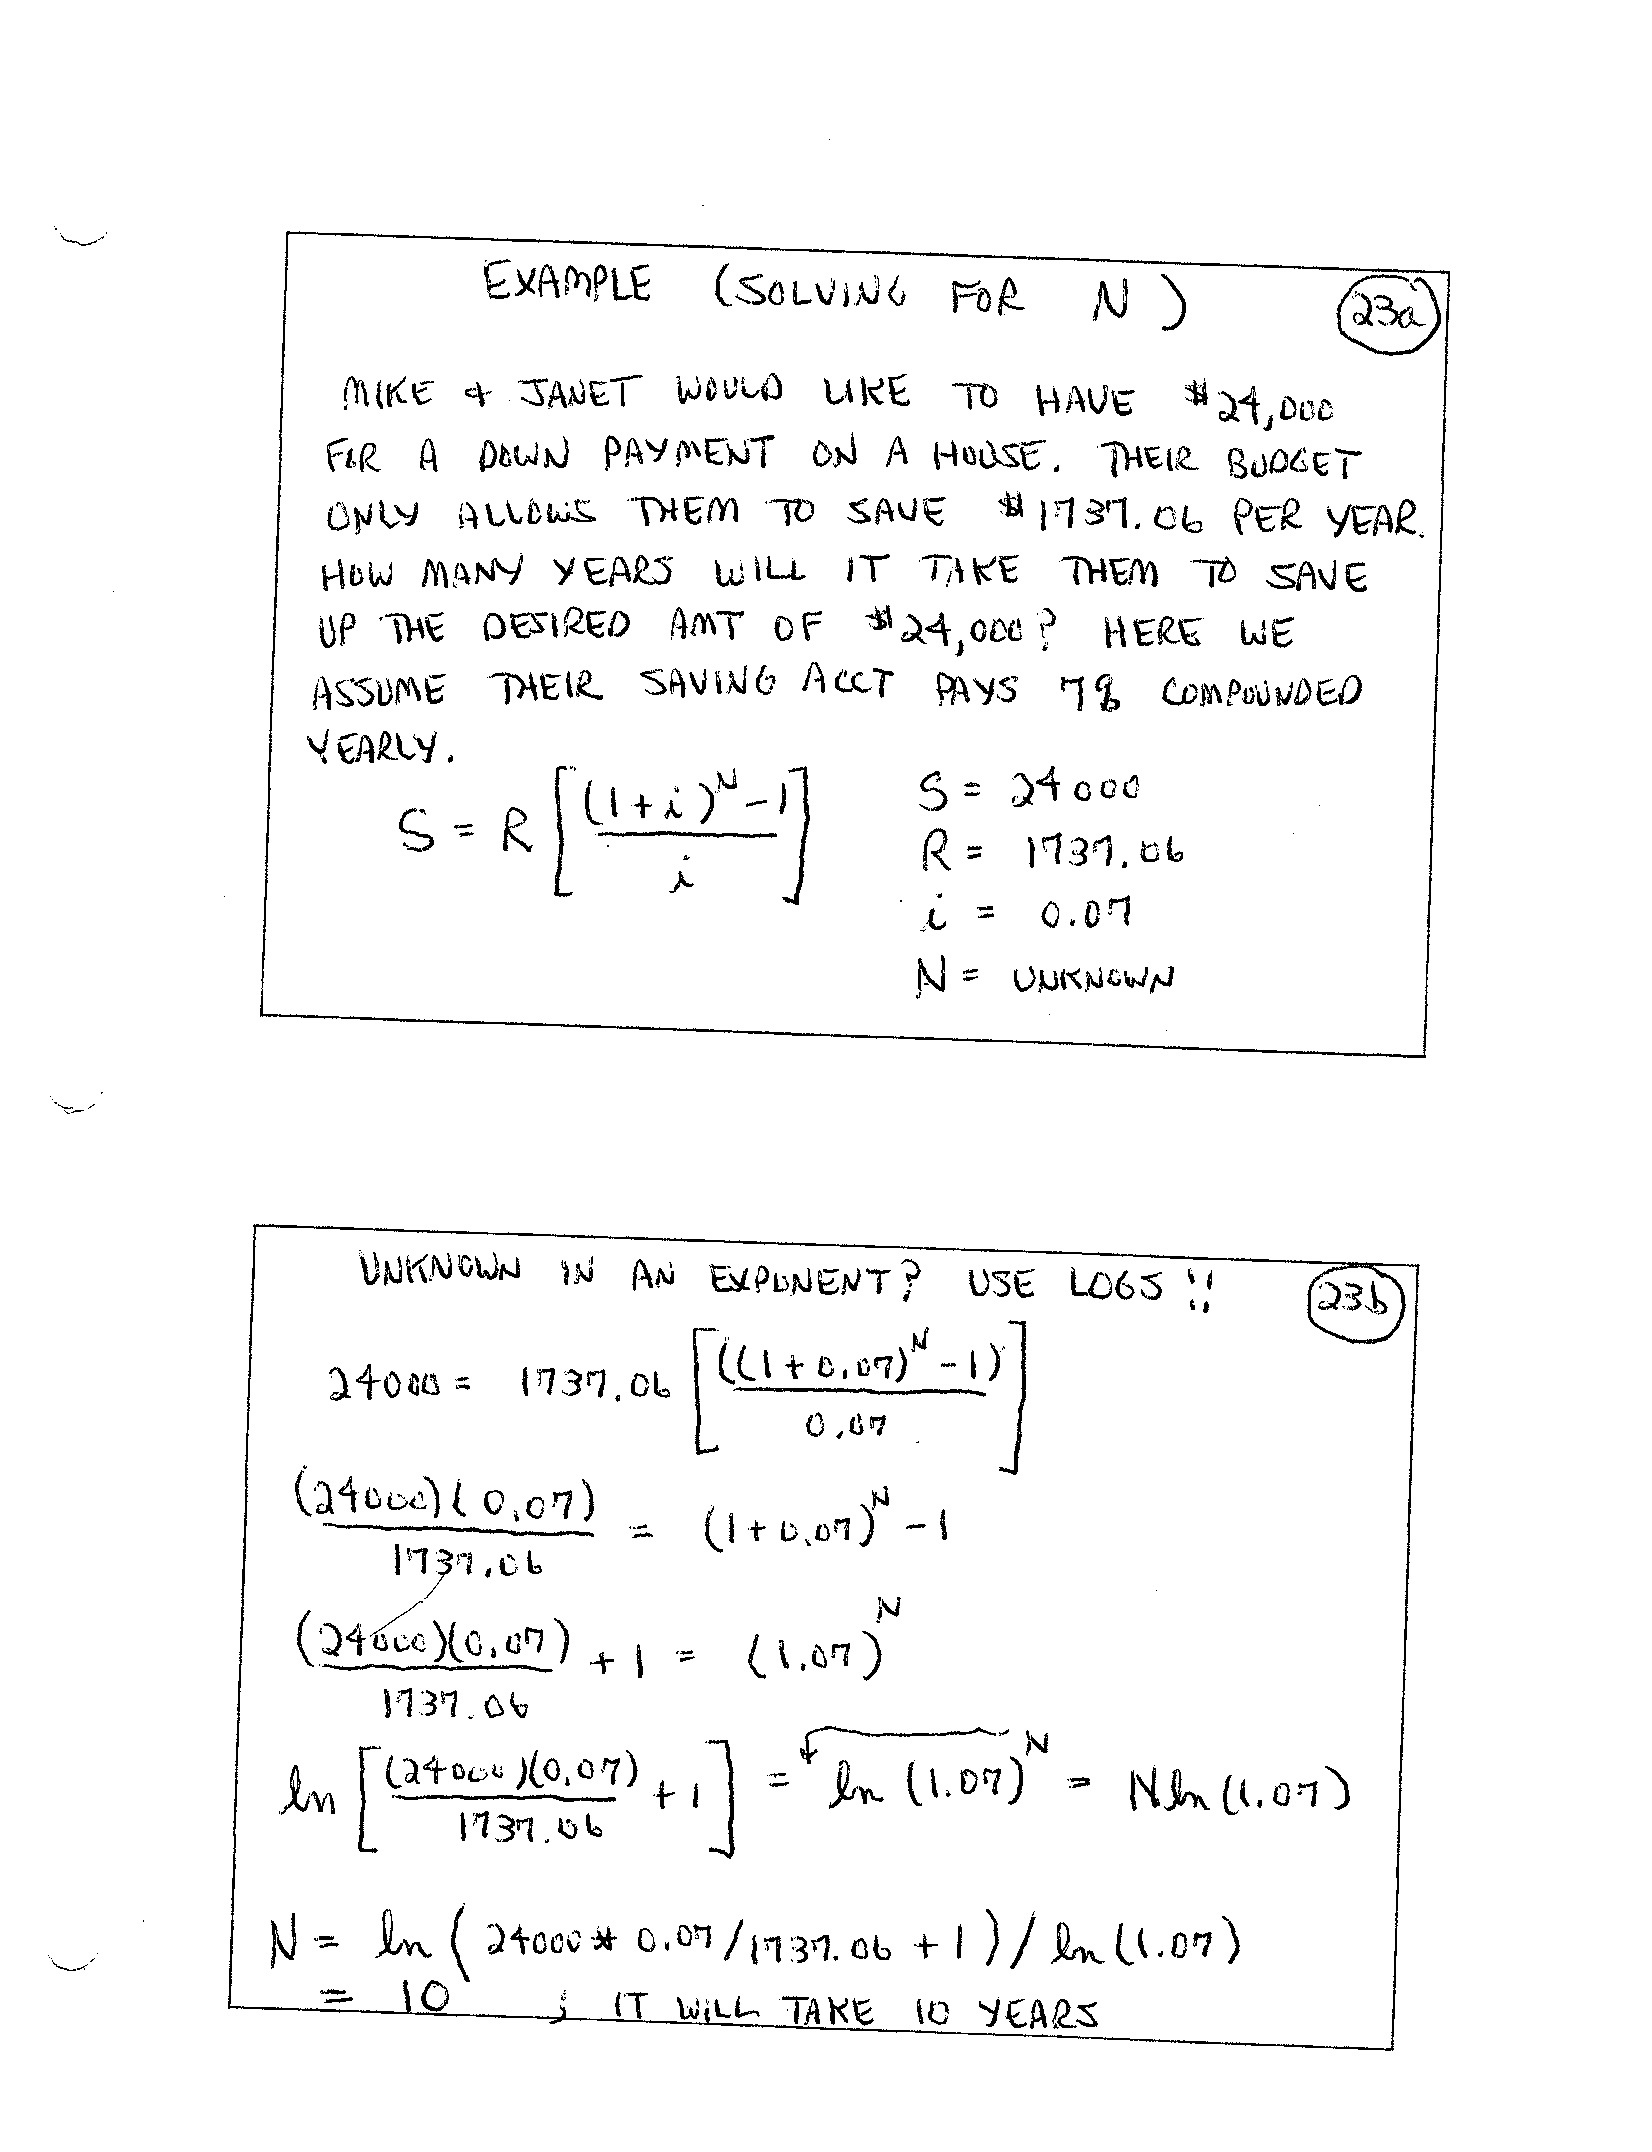 EXAMPLE (SOLVING FOR N) 23a
MIKE & JANET WOULD LIKE TO HAVE $24,000
FOR A DOWN PAYMENT ON A HOUSE. THEIR BUDGET
ONLY ALLOWS THEM TO SAVE $1737.06 PER YEAR.
HOW MANY YEARS WILL IT TAKE THEM TO SAVE
UP THE DESIRED AMT OF $24,000? HERE WE
ASSUME THEIR SAVING ACCT PAYS 7% COMPOUNDED
YEARLY.
S = R [((1+i)^N - 1) / i]
S = 24000
R = 1737.06
i = 0.07
N = UNKNOWN
UNKNOWN IN AN EXPONENT? USE LOGS!! 23b
24000 = 1737.06 [((1+0.07)^N - 1) / 0.07]
(24000)(0.07) / 1737.06 = (1+0.07)^N - 1
(24000)(0.07) / 1737.06 + 1 = (1.07)^N
ln [(24000)(0.07) / 1737.06 + 1] = ln (1.07)^N = N ln (1.07)
N = ln (24000 * 0.07/1737.06 + 1) / ln (1.07)
= 10 ; IT WILL TAKE 10 YEARS